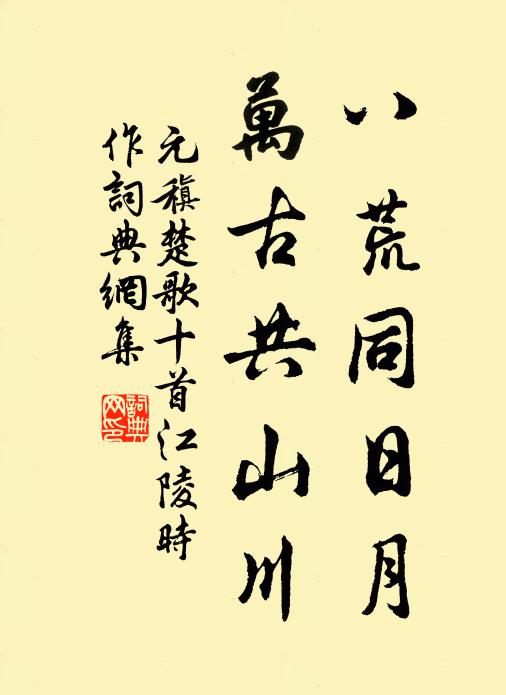 八荒同日月
萬古共山川
元稹楚歌十首江陵時
作詞典網集
詞典網印